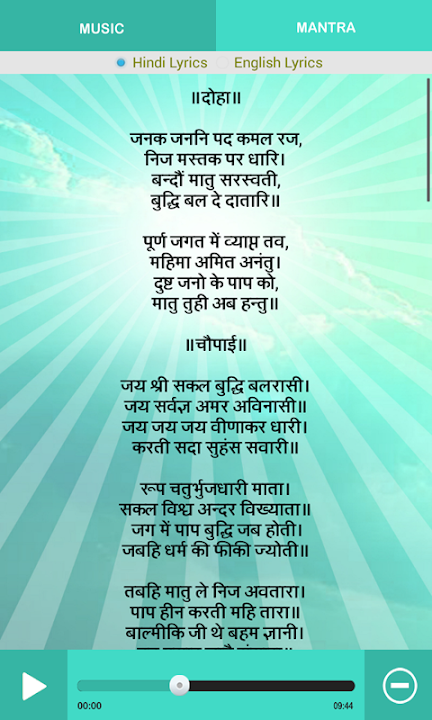 MUSIC
MANTRA
Hindi Lyrics
English Lyrics
॥दोहा॥
जनक जननि पद कमल रज,
निज मस्तक पर धारि।
बन्दौं मातु सरस्वती,
बुद्धि बल दे दातारि॥
पूर्ण जगत में व्याप्त तव,
महिमा अमित अनंतु।
दुष्ट जनो के पाप को,
मातु तुही अब हन्तु॥
॥चौपाई॥
जय श्री सकल बुद्धि बलरासी।
जय सर्वज्ञ अमर अविनासी॥
जय जय जय वीणाकर धारी।
करती सदा सुहंस सवारी॥
रूप चतुर्भुजधारी माता।
सकल विश्व अन्दर विख्याता॥
जग में पाप बुद्धि जब होती।
जबहि धर्म की फीकी ज्योती॥
तबहि मातु ले निज अवतारा।
पाप हीन करती महि तारा॥
बाल्मीकि जी थे बहम ज्ञानी।
00:00
09:44